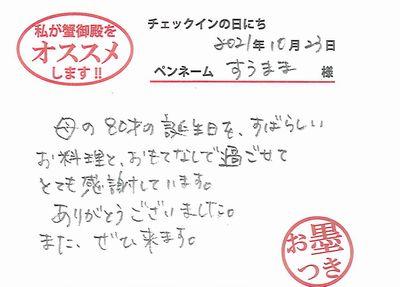 私が蟹御殿を
オススメ
します!!
チェックインの日にち
2021年10月23日
ペンネーム すうまま 様
母の80才の誕生日を、すばらしい
お料理と、おもてなしで過ごせて
とても感謝しています。
ありがとうございました。
また、ぜひ来ます。
お墨
つき